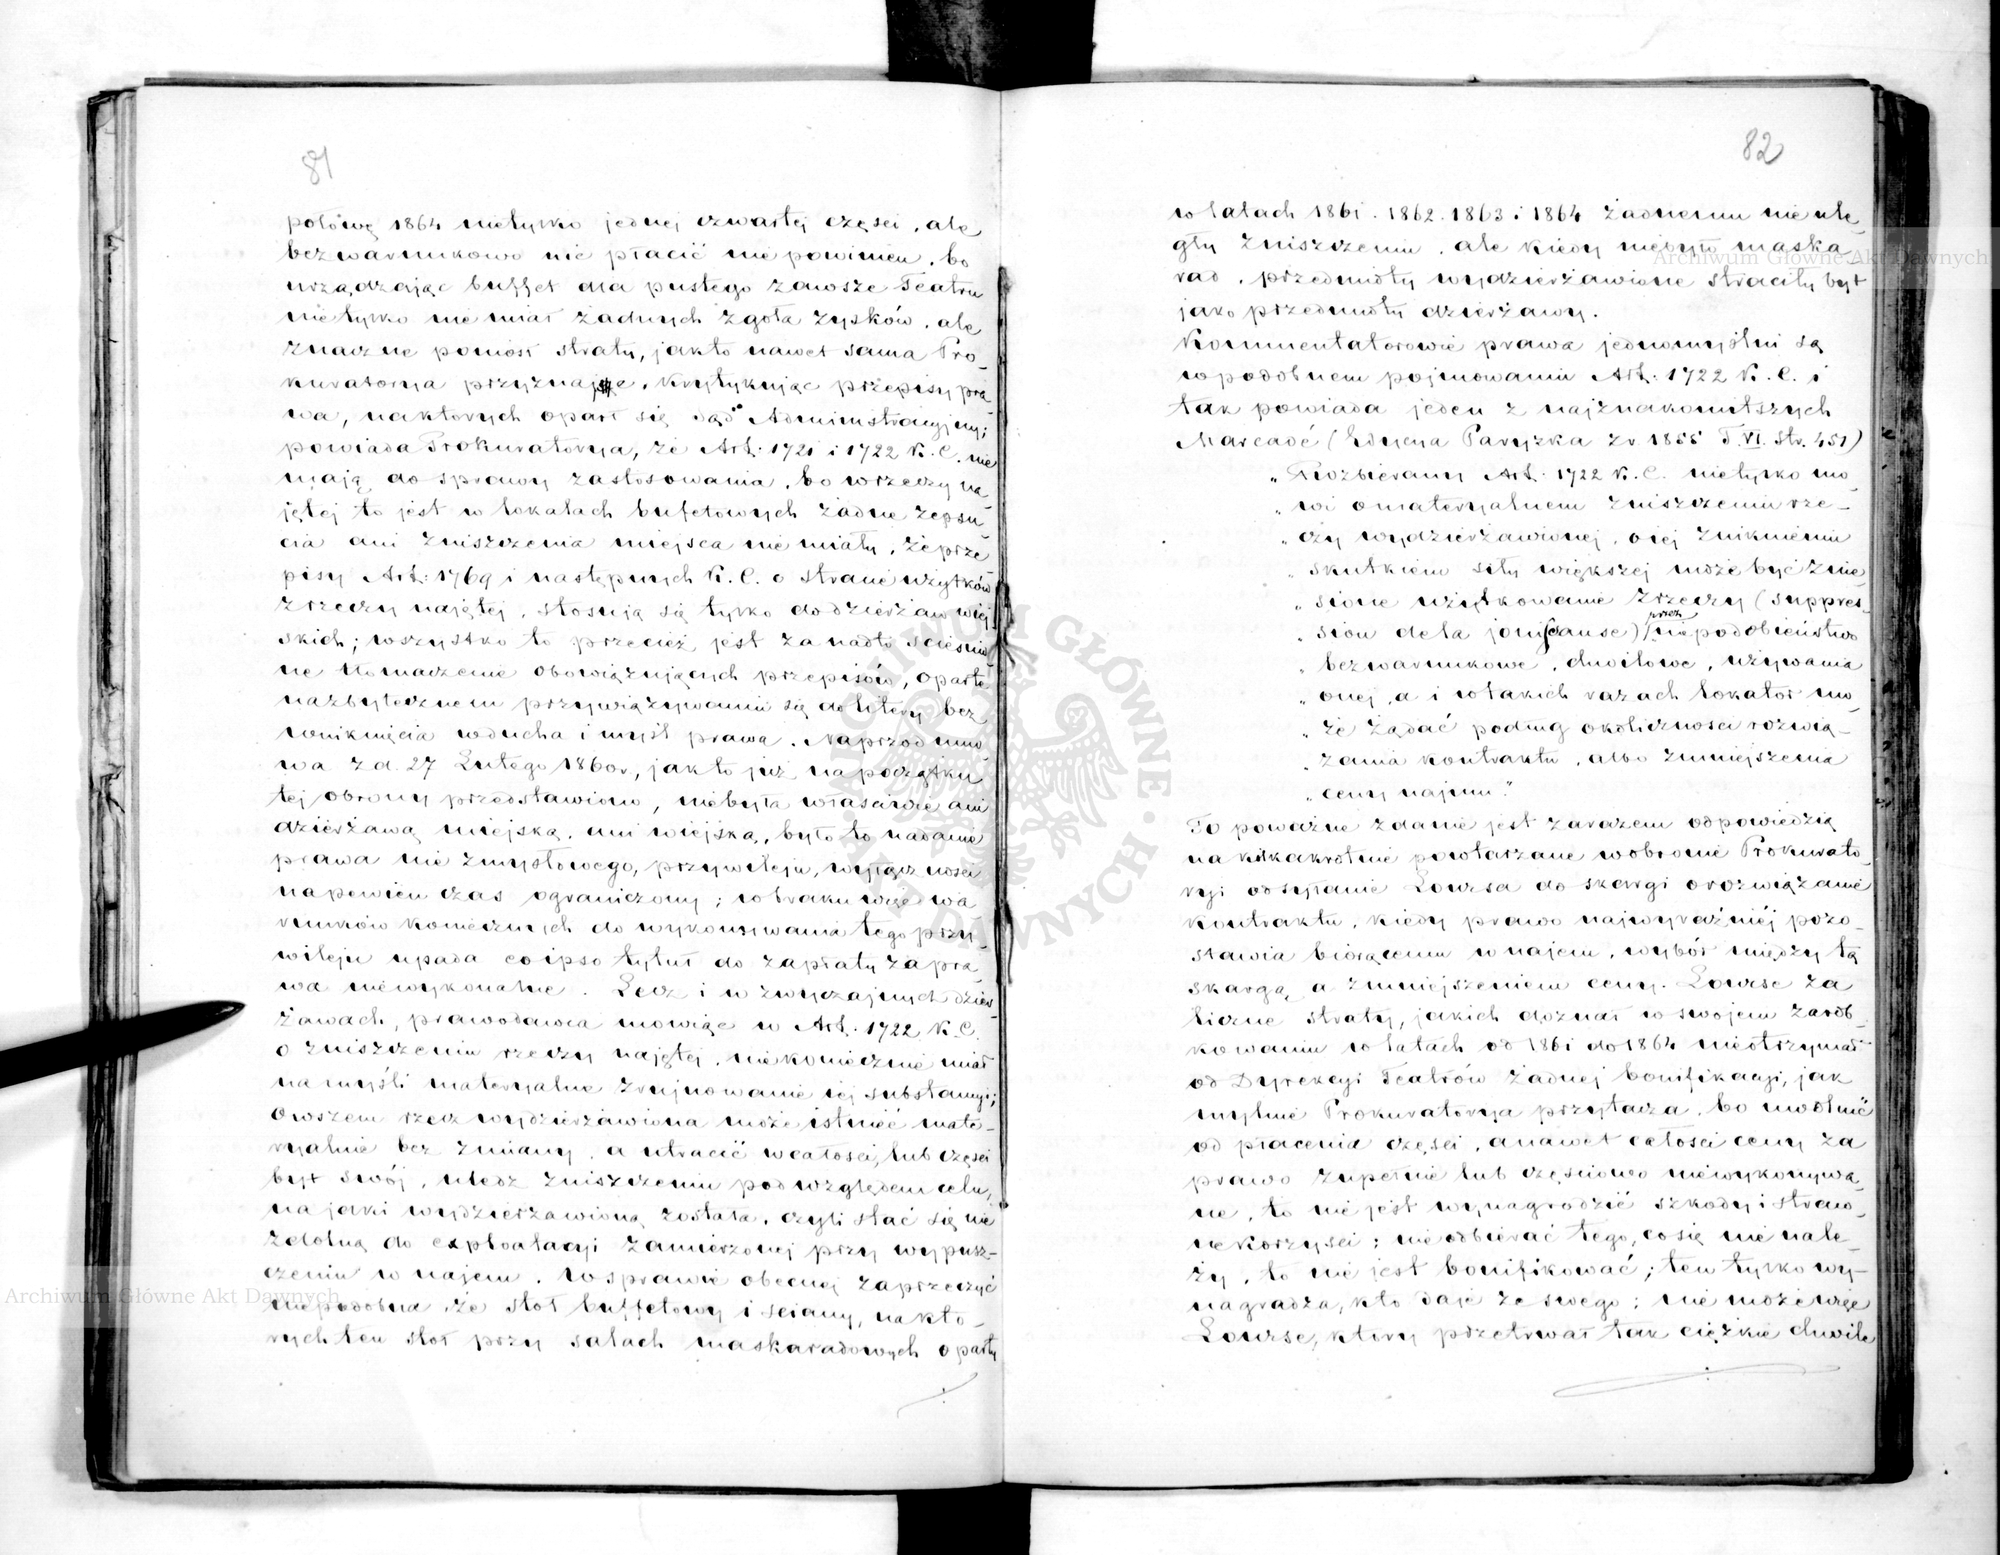 81
połowę 1864 nietylko jednej czwartej części, ale
bezwarunkowo nic płacić nie powinien, bo
urządzając buffet dla pustego zawsze Teatru
nietylko nie miał żadnych zgoła zysków, ale
znaczne poniósł straty, jak to nawet sama Pro-
kuratorya przyznaje. Krytykując przepisy pra-
wa, na których oparł się Sąd Administracyjny;
powiada Prokuratorya, że Art: 1721 i 1722 K. C. nie
mają do sprawy zastosowania, bo w rzeczy na-
jętej to jest w lokalach bufetowych żadne zepsu-
cia ani zniszczenia miejsca nie miały, że prze-
pisy Art: 1769 i następnych K. C. o stracie użytków
z rzeczy najętej, stosują się tylko do dzierżaw wiej-
skich; wszystko to przecież jest za nadto ścieśnio-
ne tłomaczenie obowiązujących przepisów, oparte
na zbytecznem przywiązywaniu się do litery bez
wniknięcia w ducha i myśl prawa. Naprzód umo-
wa z d. 27 Lutego 1860 r., jak to już na początku
tej obrony przedstawiono, nie była właściwie ani
dzierżawą miejską, ani wiejską, było to nadanie
prawa nie zmysłowego, przywileju, wyłączności
na pewien czas ograniczony; w braku więc wa-
runków koniecznych do wykonywania tego przy-
wileju upada eo ipso tytuł do zapłaty za pra-
wa niewykonalne. Lecz i w zwyczajnych dzier-
żawach, prawodawca mowiąc w Art: 1722 K. C.
o zniszczeniu rzeczy najętej, niekoniecznie miał
na myśli materyalne zrujnowanie jej substancyi;
Owszem rzecz wydzierżawiona może istnieć mate-
ryalnie bez zmiany, a utracić w całości, lub części
byt swój, uledz zniszczeniu pod względem celu,
na jaki wydzierżawioną została, czyli stać się nie
zdolną do exploatacyi zamierzonej przy wypusz-
czeniu w najem. W sprawie obecnej zaprzeczyć
niepodobna, że stół buffetowy i ściany, na któ-
rych ten stół przy salach maskaradowych oparty
82
w latach 1861. 1862. 1863 i 1864 żadnemu nie ule-
gły zniszczeniu, ale kiedy niebyło maska-
rad, przedmioty wydzierżawione straciły byt
jako przedmioty dzierżawy.
Kommentatorowie prawa jednomyślni są
w podobnem pojmowaniu Art: 1722 K. C. i
tak powiada jeden z najznakomitszych
Marcadé (Edycya Paryzka z r. 1855 T. VI. str. 451)
„Rozbierany Art: 1722 K. C. nietylko mo-
„wi o materyalnem zniszczeniu rze-
„czy wydzierżawionej, o jej zniknieniu
„skutkiem siły większej może być znie-
„sione użytkowanie z rzeczy (suppres-
„sion de la jouissance) przez niepodobieństwo
„bezwarunkowe, chwilowe, używania
„onej, a i w takich razach lokator mo-
„że żądać podług okoliczności rozwią-
„zania kontraktu, albo zmniejszenia
„ceny najmu."
To poważne zdanie jest zarazem odpowiedzią
na kilkakrotnie powtarzane w obronie Prokurato-
ryi odsyłanie Loursa do skargi o rozwiązanie
kontraktu, kiedy prawo najwyraźniéj pozo-
stawia biorącemu w najem, wybór między tą
skargą, a zmniejszeniem ceny. Lourse za
liczne straty, jakich doznał w swojem zarob-
kowaniu w latach od 1861 do 1864 nieotrzymał
od Dyrekcyi Teatrów żadnej bonifikacyi, jak
mylnie Prokuratorya przytacza, bo uwolnić
od płacenia części, a nawet całości ceny za
prawo zupełnie lub częściowo niewykonywa-
ne, to nie jest wynagrodzić szkody i straco-
ne korzyści; nie odbierać tego, co się nie nale-
ży, to nie jest bonifikować; ten tylko wy-
nagradza, kto daje ze swego; nie może więc
Lourse, który przetrwał tak ciężkie chwile
Archiwum Główne Akt Dawnych
Archiwum Główne Akt Dawnych
ARCHIWUM GŁÓWNE AKT DAWNYCH